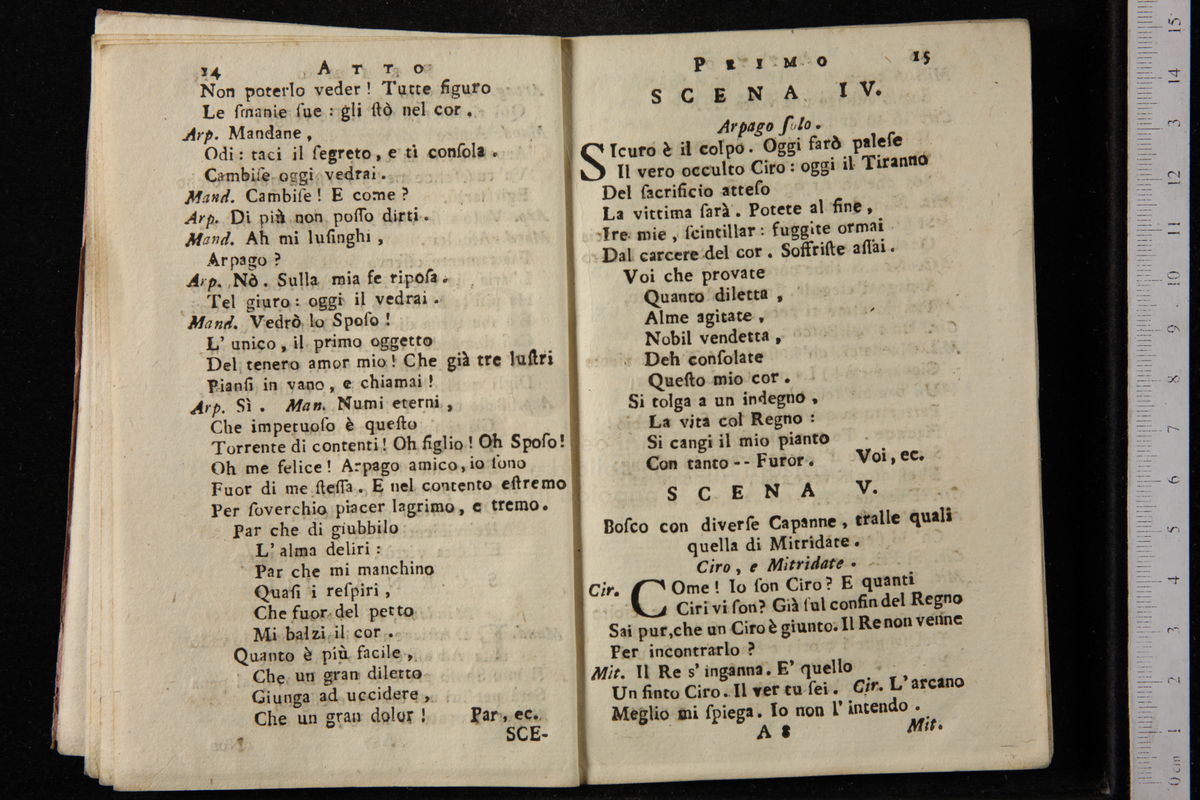 14 ATTO
Non poterlo veder! Tutte figuro
Le ſmanie ſue: gli ſtò nel cor.
Arp. Mandane,
Odi: taci il ſegreto, e ti conſola.
Cambiſe oggi vedrai.
Mand. Cambiſe! E come?
Arp. Di più non poſſo dirti.
Mand. Ah mi luſinghi,
Arpago?
Arp. Nò. Sulla mia fe ripoſa.
Tel giuro: oggi il vedrai.
Mand. Vedrò lo Spoſo!
L' unico, il primo oggetto
Del tenero amor mio! Che già tre luſtri
Pianſi in vano, e chiamai!
Arp. Sì. Man. Numi eterni,
Che impetuoſo è queſto
Torrente di contenti! Oh figlio! Oh Spoſo!
Oh me felice! Arpago amico, io ſono
Fuor di me ſteſſa. E nel contento eſtremo
Per ſoverchio piacer lagrimo, e tremo.
Par che di giubbilo
L' alma deliri:
Par che mi manchino
Quaſi i reſpiri,
Che fuor del petto
Mi balzi il cor.
Quanto è più facile,
Che un gran diletto
Giunga ad uccidere,
Che un gran dolor! Par, ec.
SCE-
PRIMO 15
SCENA IV.
Arpago ſolo.
SIcuro è il colpo. Oggi farò paleſe
Il vero occulto Ciro: oggi il Tiranno
Del ſacrificio atteſo
La vittima ſarà. Potete al fine,
Ire mie, ſcintillar: fuggite ormai
Dal carcere del cor. Soffriſte aſſai.
Voi che provate
Quanto diletta,
Alme agitate,
Nobil vendetta,
Deh conſolate
Queſto mio cor.
Si tolga a un indegno,
La vita col Regno:
Si cangi il mio pianto
Con tanto -- Furor. Voi, ec.
SCENA V.
Boſco con diverſe Capanne, tralle quali
quella di Mitridate.
Ciro, e Mitridate.
Cir. COme! Io ſon Ciro? E quanti
Ciri vi ſon? Già ſul confin del Regno
Sai pur, che un Ciro è giunto. Il Re non venne
Per incontrarlo?
Mit. Il Re s' inganna. E' quello
Un finto Ciro. Il ver tu ſei. Cir. L' arcano
Meglio mi ſpiega. Io non l' intendo.
A 8 Mit.